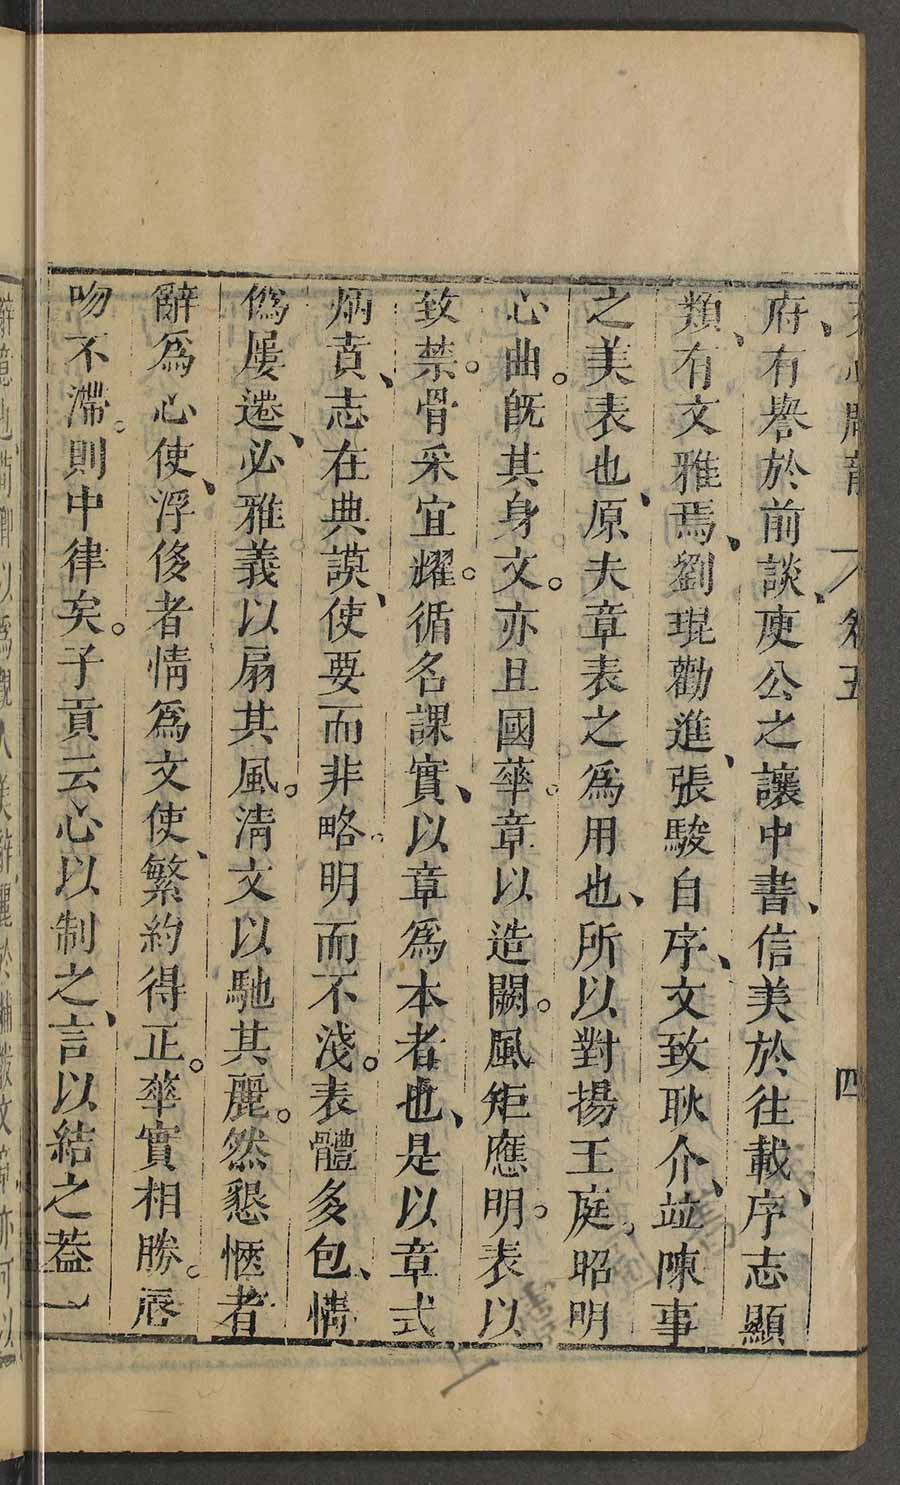 府有譽於前談、庾公之讓中書、信美於往載、序志顯
類、有文雅焉、劉琨勸進、張駿自序、文致耿介、竝陳事
之美表也、原夫章表之爲用也、所以對揚王庭。昭明
心曲。旣其身文。亦且國華。章以造闕。風矩應明。表以
致禁。骨采宜耀。循名課實、以章爲本者也、是以章式
炳賁、志在典謨、使要而非略。明而不淺。表體多包、情
僞屢遷、必雅義以扇其風。淸文以馳其麗。然懇愜者
辭爲心使、浮侈者情爲文使、繁約得正。華實相勝。脣
吻不滯。則中律矣。子貢云心以制之、言以結之葢一
卷五
四